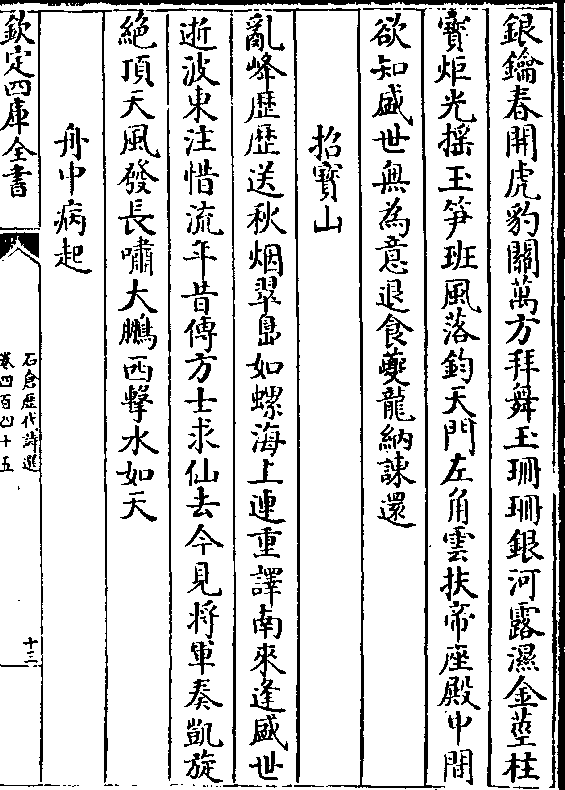 銀鑰春開虎豹關萬方拜舞玉珊珊銀河露濕金莖柱
寳炬光揺玉笋班風落鈞天門左角雲扶帝座殿中間
欲知盛世無為意退食夔龍納諌還
招寳山
亂峰歴歴送秋烟翠島如螺海上連重譯南來逢盛世
逝波東注惜流年昔傳方士求仙去今見將軍奏凱旋
絶頂天風發長嘯大鵬西擊水如天
舟中病起
欽定四庫全書
石倉歴代詩選
卷四百四十五
十三